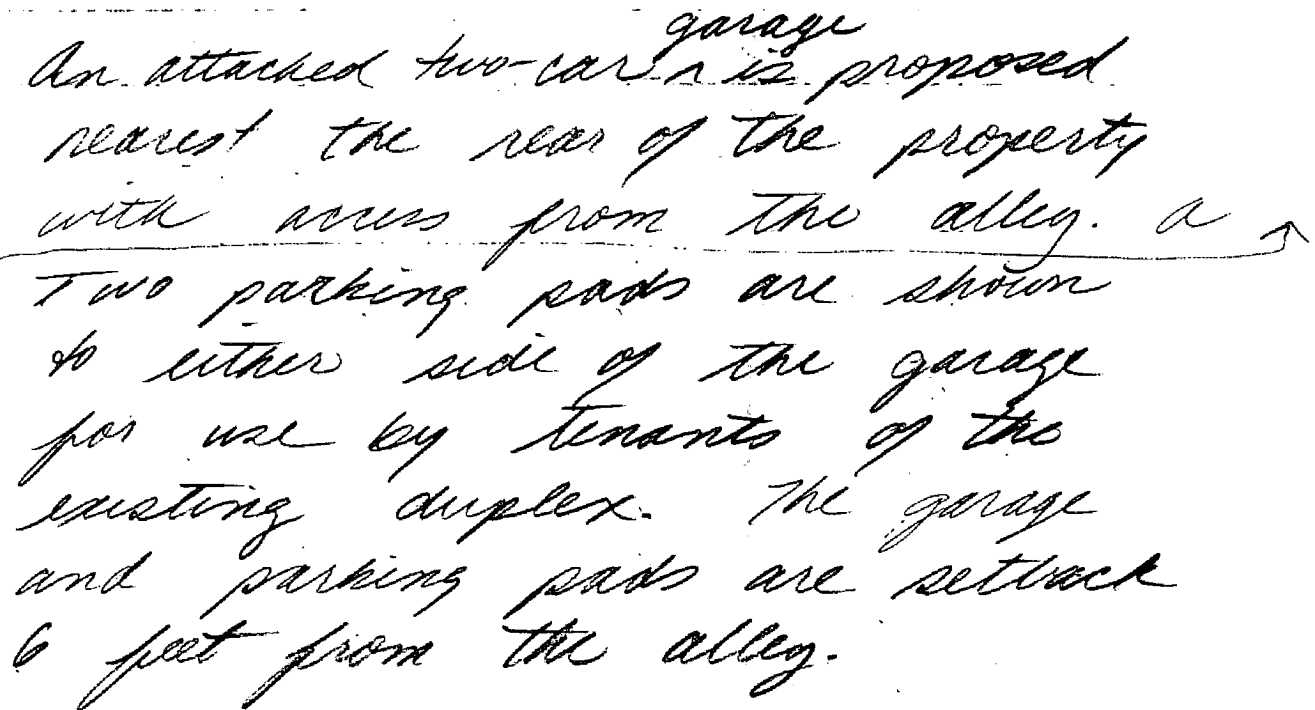 An attached two-car ^garage is proposed
nearest the rear of the property
with access from the alley. a
Two parking pads are shown
to either side of the garage
for use by tenants of the
existing duplex. The garage
and parking pads are setback
6 feet from the alley.